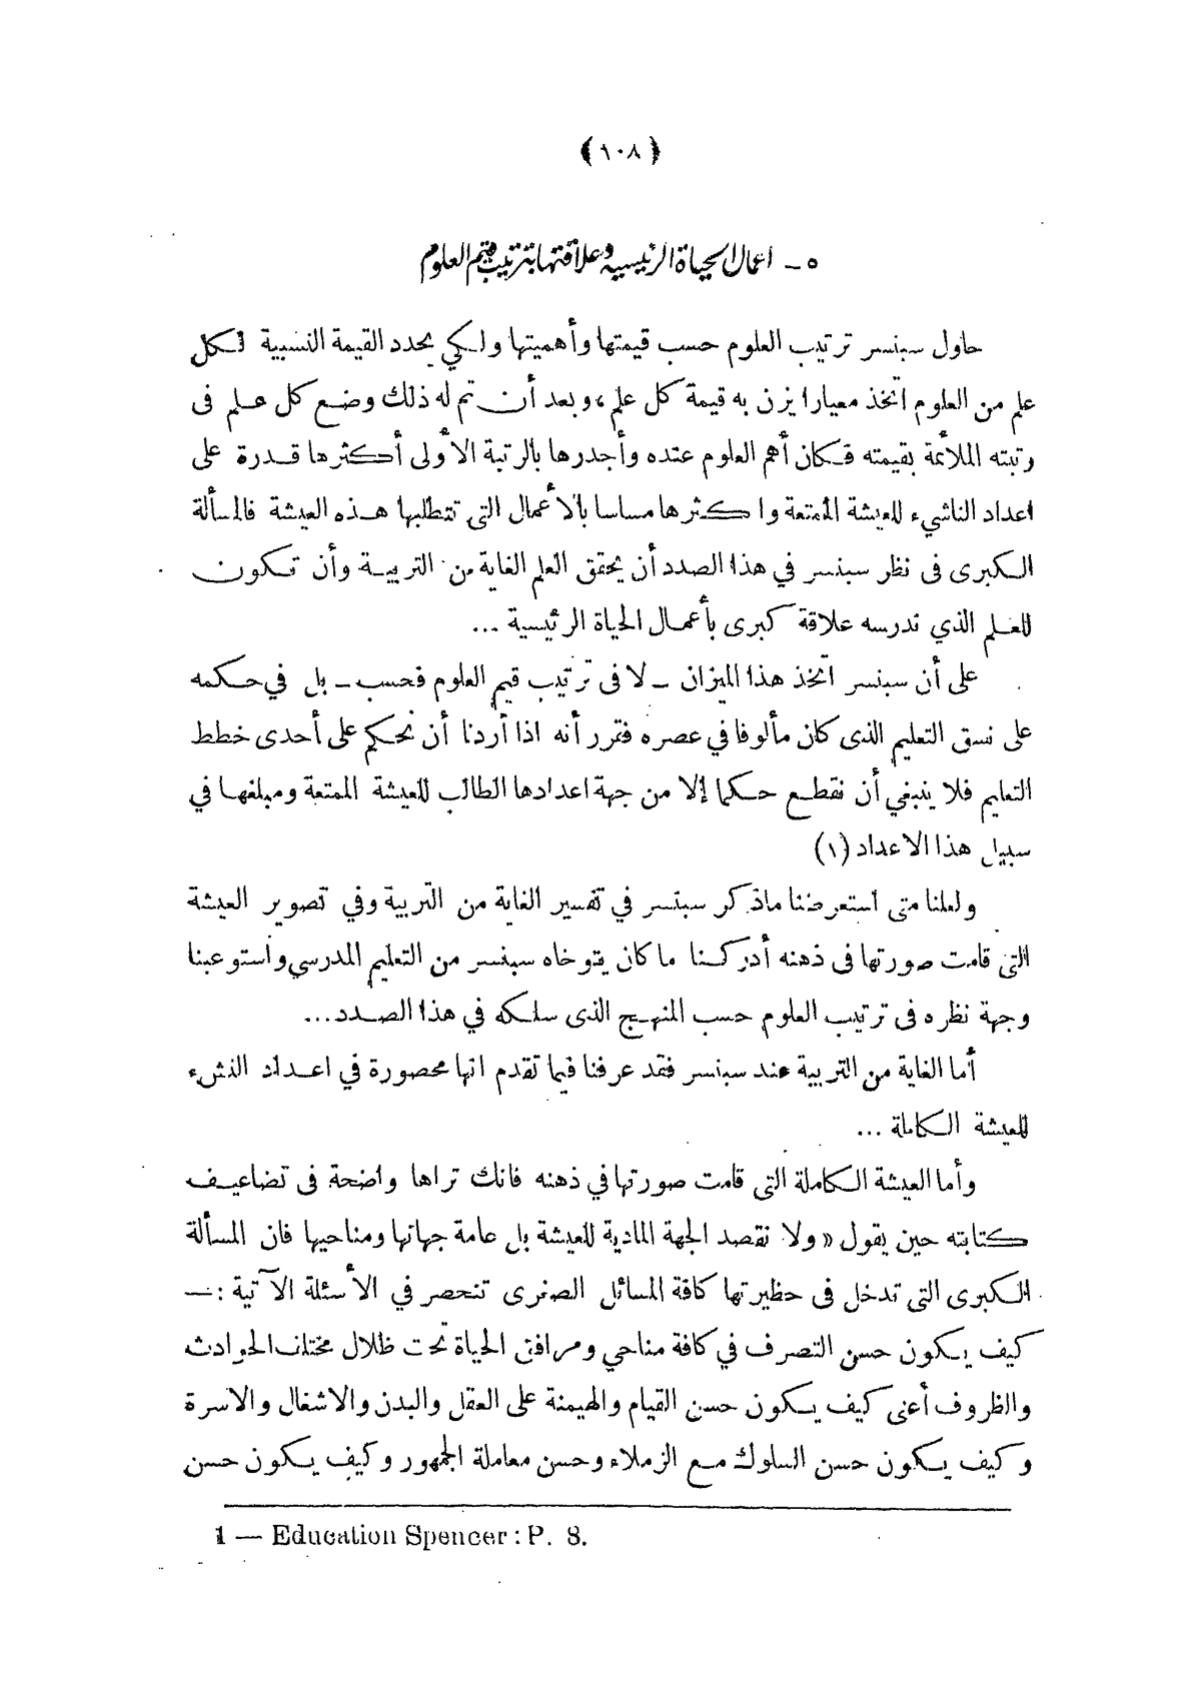 ﴿ ١٠٨ ﴾
٥ - اعمال الحياة الرئيسية وعلاقتها بترتيب قيم العلوم
حاول سبنسر ترتيب العلوم حسب قيمتها وأهميتها ولكي يحدد القيمة النسبية لكل
علم من العلوم اتخذ معيارا يزن به قيمة كل علم، وبعد أن تم له ذلك وضع كل علم فى
رتبته الملائمة بقيمته فكان أهم العلوم عنده وأجدرها بالرتبة الأولى أكثرها قدرة على
اعداد الناشيء للعيشة الممتعة واكثرها مساسا بالأعمال التى تتطلبها هذه العيشة فالمسألة
الكبرى فى نظر سبنسر في هذا الصدد أن يحقق العلم الغاية من التربية وأن تكون
للعلم الذي ندرسه علاقة كبرى بأعمال الحياة الرئيسية ...
على أن سبنسر اتخذ هذا الميزان ـ لا فى ترتيب قيم العلوم فحسب ـ بل في حكمه
على نسق التعليم الذى كان مألوفا في عصره فقرر أنه اذا أردنا أن نحكم على أحدى خطط
التعليم فلا ينبغي أن نقطع حكما إلا من جهة اعدادها الطالب للعيشة الممتعة ومبلغها في
سبيل هذا الاعداد (١)
ولعلنا متى استعرضنا ماذكر سبنسر في تفسير الغاية من التربية وفي تصوير العيشة
التى قامت صورتها فى ذهنه أدركنا ما كان يتوخاه سبنسر من التعليم المدرسي واستوعبنا
وجهة نظره فى ترتيب العلوم حسب المنهج الذى سلكه في هذا الصدد...
أما الغاية من التربية عند سبنسر فقد عرفنا فيما تقدم انها محصورة في اعداد النشء
للعيشة الكاملة ...
وأما العيشة الكاملة التى قامت صورتها في ذهنه فانك تراها واضحة فى تضاعيف
كتابته حين يقول « ولا نقصد الجهة المادية للعيشة بل عامة جهاتها ومناحيها فان المسألة
الكبرى التى تدخل فى حظيرتها كافة المسائل الصغرى تنحصر في الأسئلة الآتية : —
كيف يكون حسن التصرف في كافة مناحي ومرافق الحياة تحت ظلال مختلف الحوادث
والظروف أعنى كيف يكون حسن القيام والهيمنة على العقل والبدن والاشغال والاسرة
وكيف يكون حسن السلوك مع الزملاء وحسن معاملة الجمهور وكيف يكون حسن
1 — Education Spencer : P. 8.